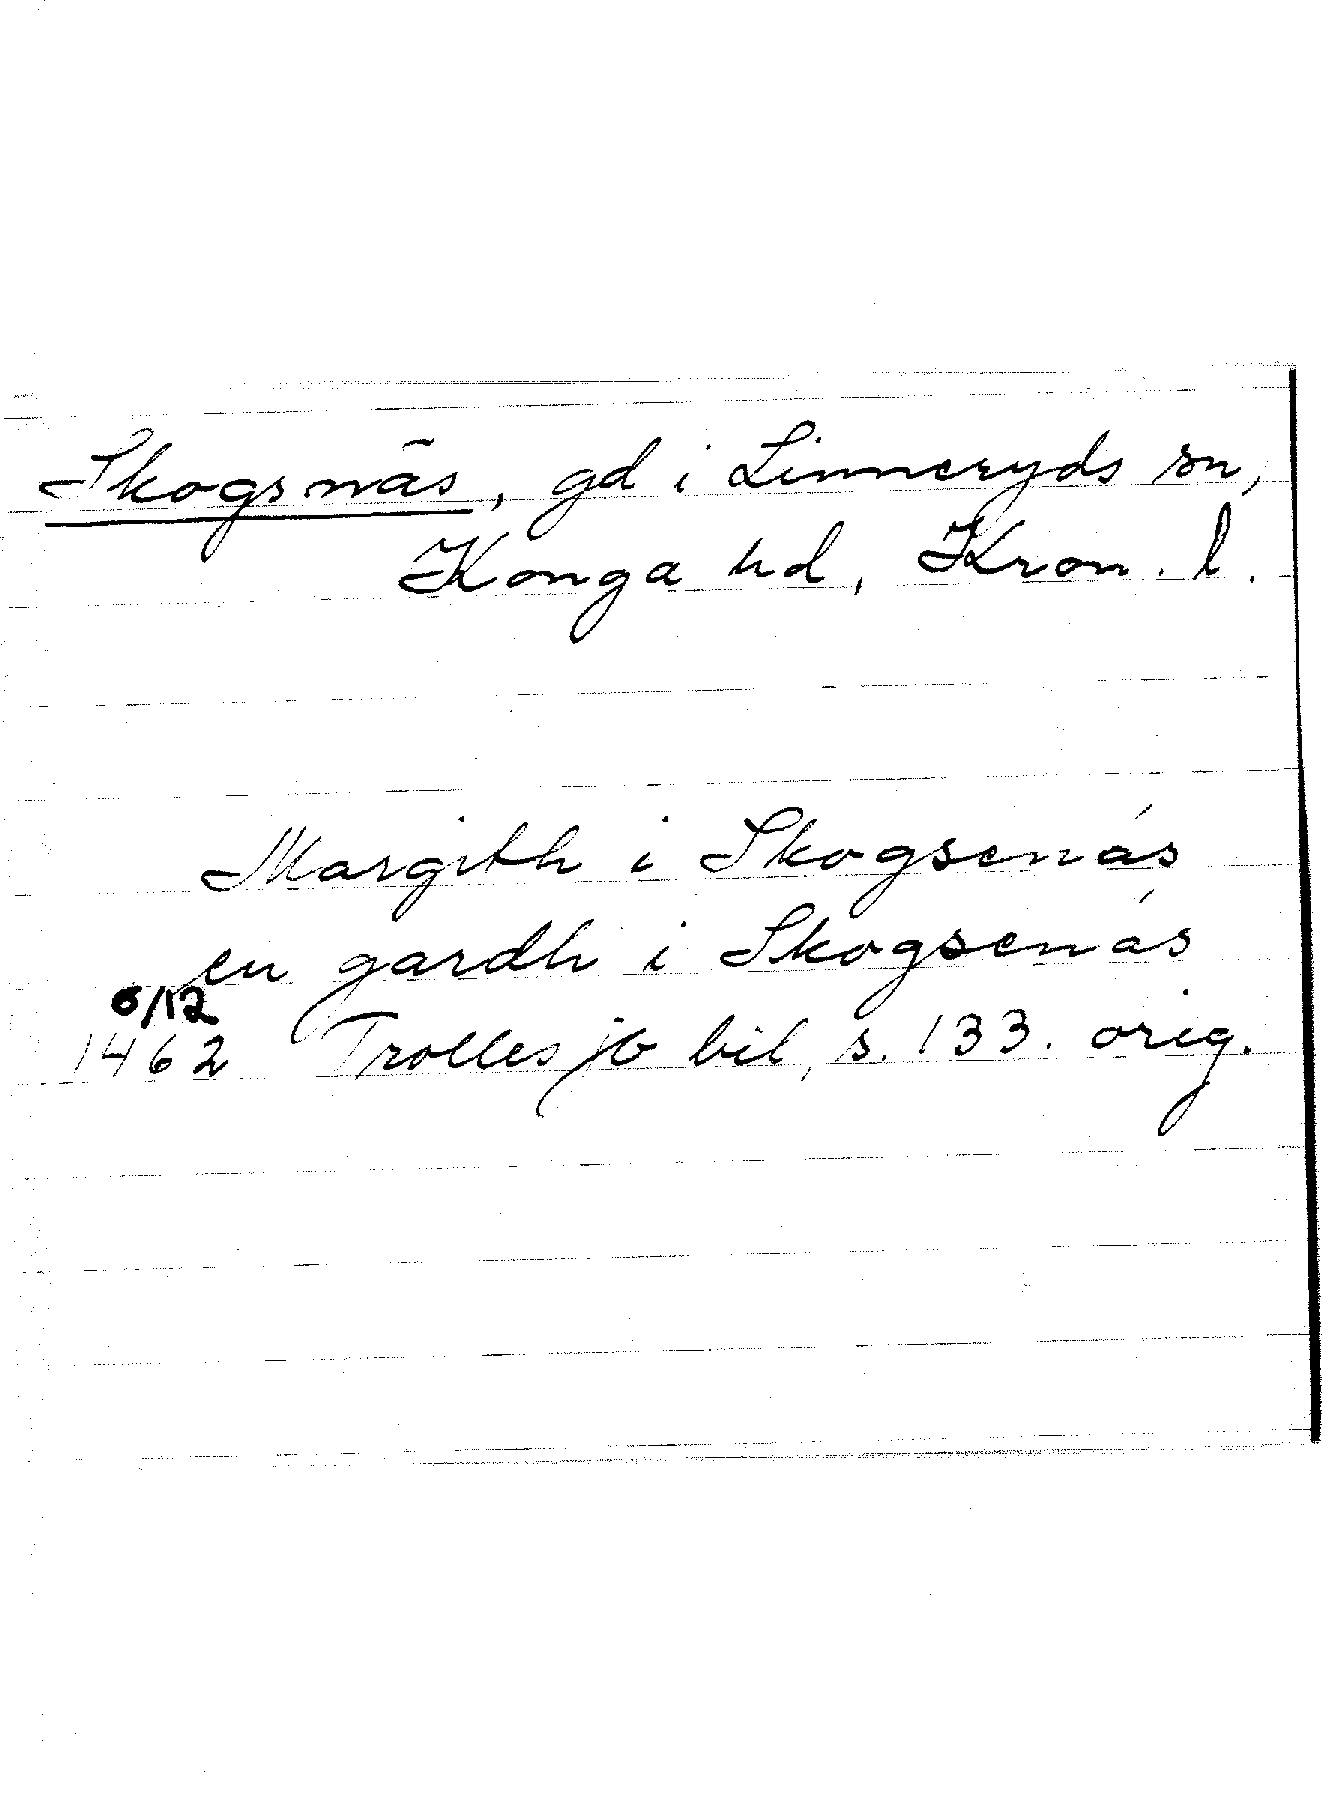 Skogsnäs, gd i Linneryds sn,
Konga hd, Kron. l.
Margith i Skogsenás
en gardh i Skogsenás
6/12
1462 Trolles jb bil, s. 133. orig.